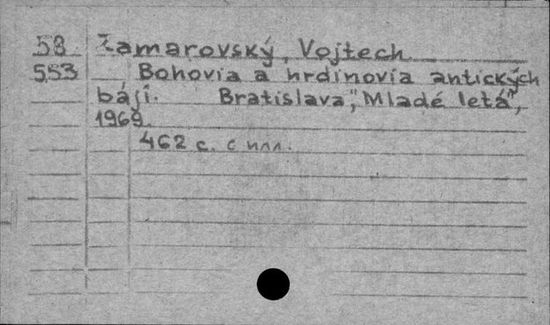 58 Zamarovský, Vojtech.
553 Bohovia a hrdinovia antických
bájí. Bratislava, "Mladé letá",
1969.
462 с. с илл.